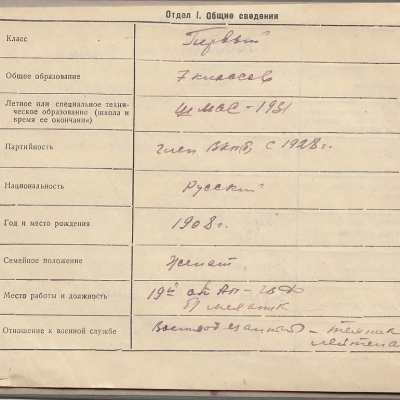 Отдел I. Общие сведения
Класс
Первый
Общее образование
7 классов
Летное или специальное техни-
ческое образование (школа и
время ее окончания)
ШМАС - 1931
Партийность
член ВКПб, с 1928 г.
Национальность
Русский
Год и место рождения
1908 г.
Семейное положение
Женат
Место работы и должность
19й
механик
Отношение к военной службе
- техник
лейтена